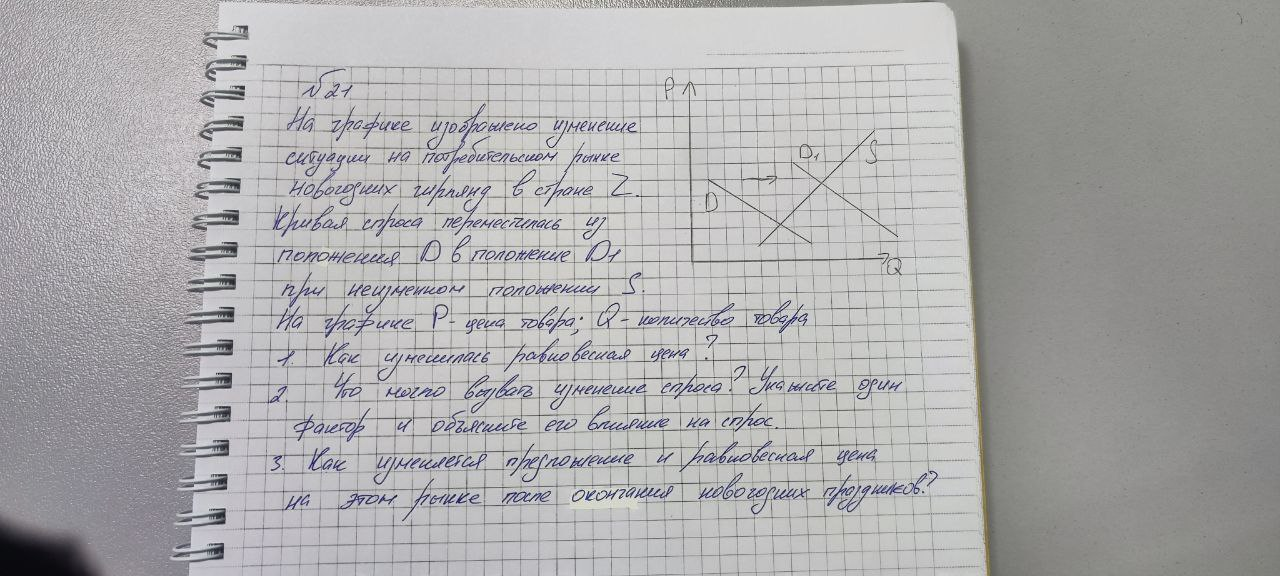 №21
На графике изображено изменение
ситуации на потребительском рынке
новогодних гирлянд в стране Z.
Кривая спроса переместилась из
положения D в положение D1
при неизменном положении S.
На графике P - цена товара; Q - количество товара
1. Как изменилась равновесная цена?
2. Что могло вызвать изменение спроса? Укажите один
фактор и объясните его влияние на спрос.
3. Как изменяется предложение и равновесная цена
на этом рынке после окончания новогодних праздников?
P
D
D1
S
Q